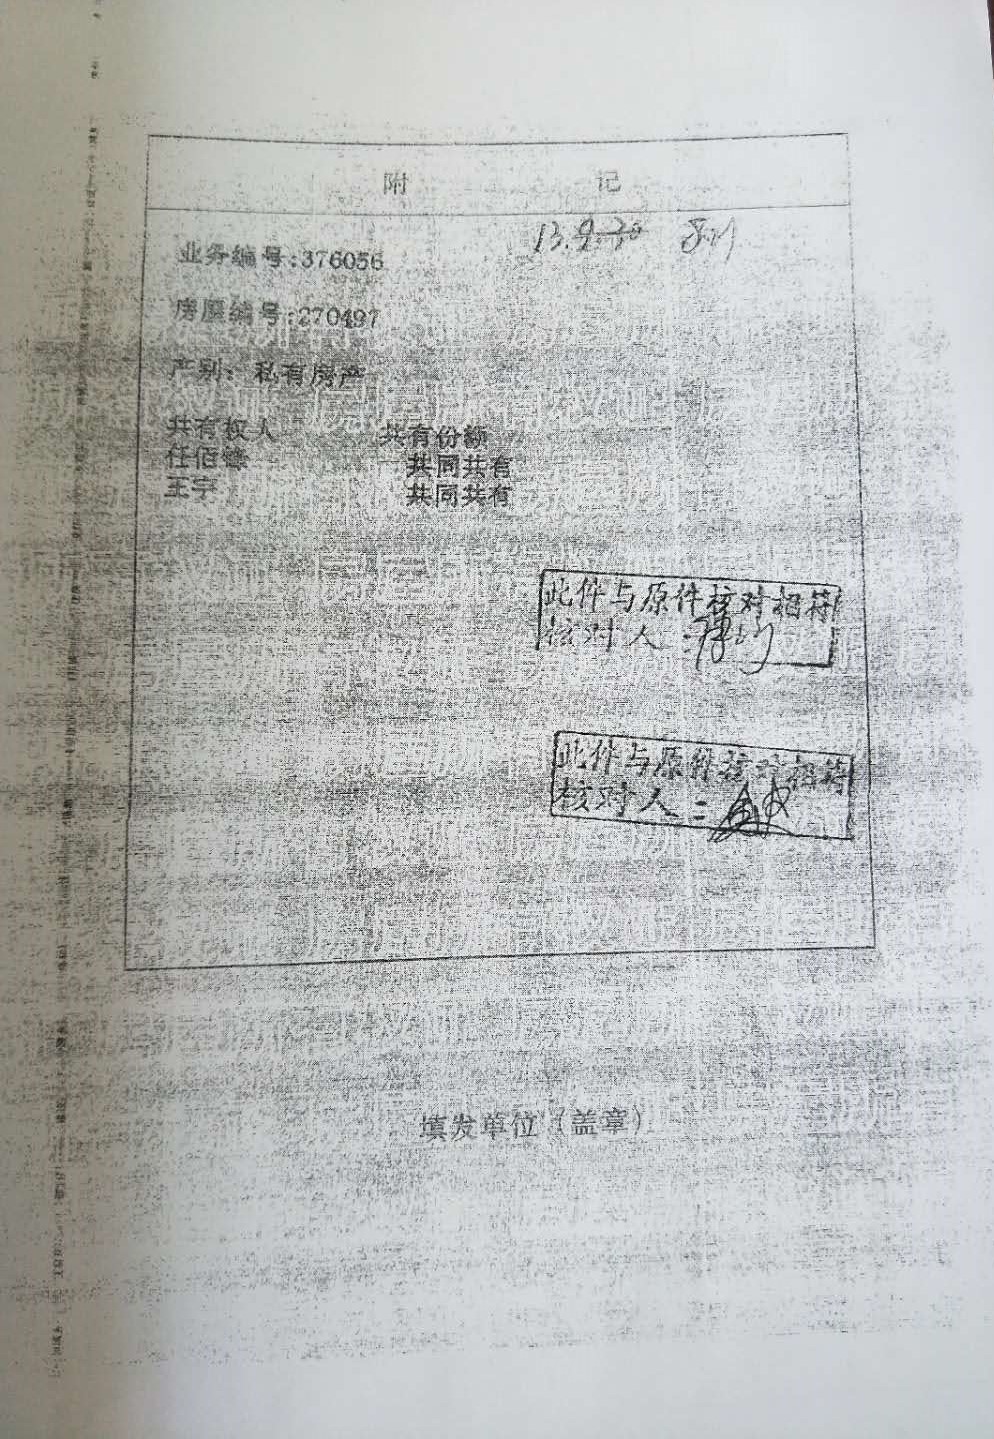 附 记
业务编号:376056
房屋编号:270497
产别: 私有房产
共有权人 共有份额
任佰锋 共同共有
王宇 共同共有
此件与原件核对相符
核对人:
此件与原件核对相符
核对人:
填发单位(盖章)